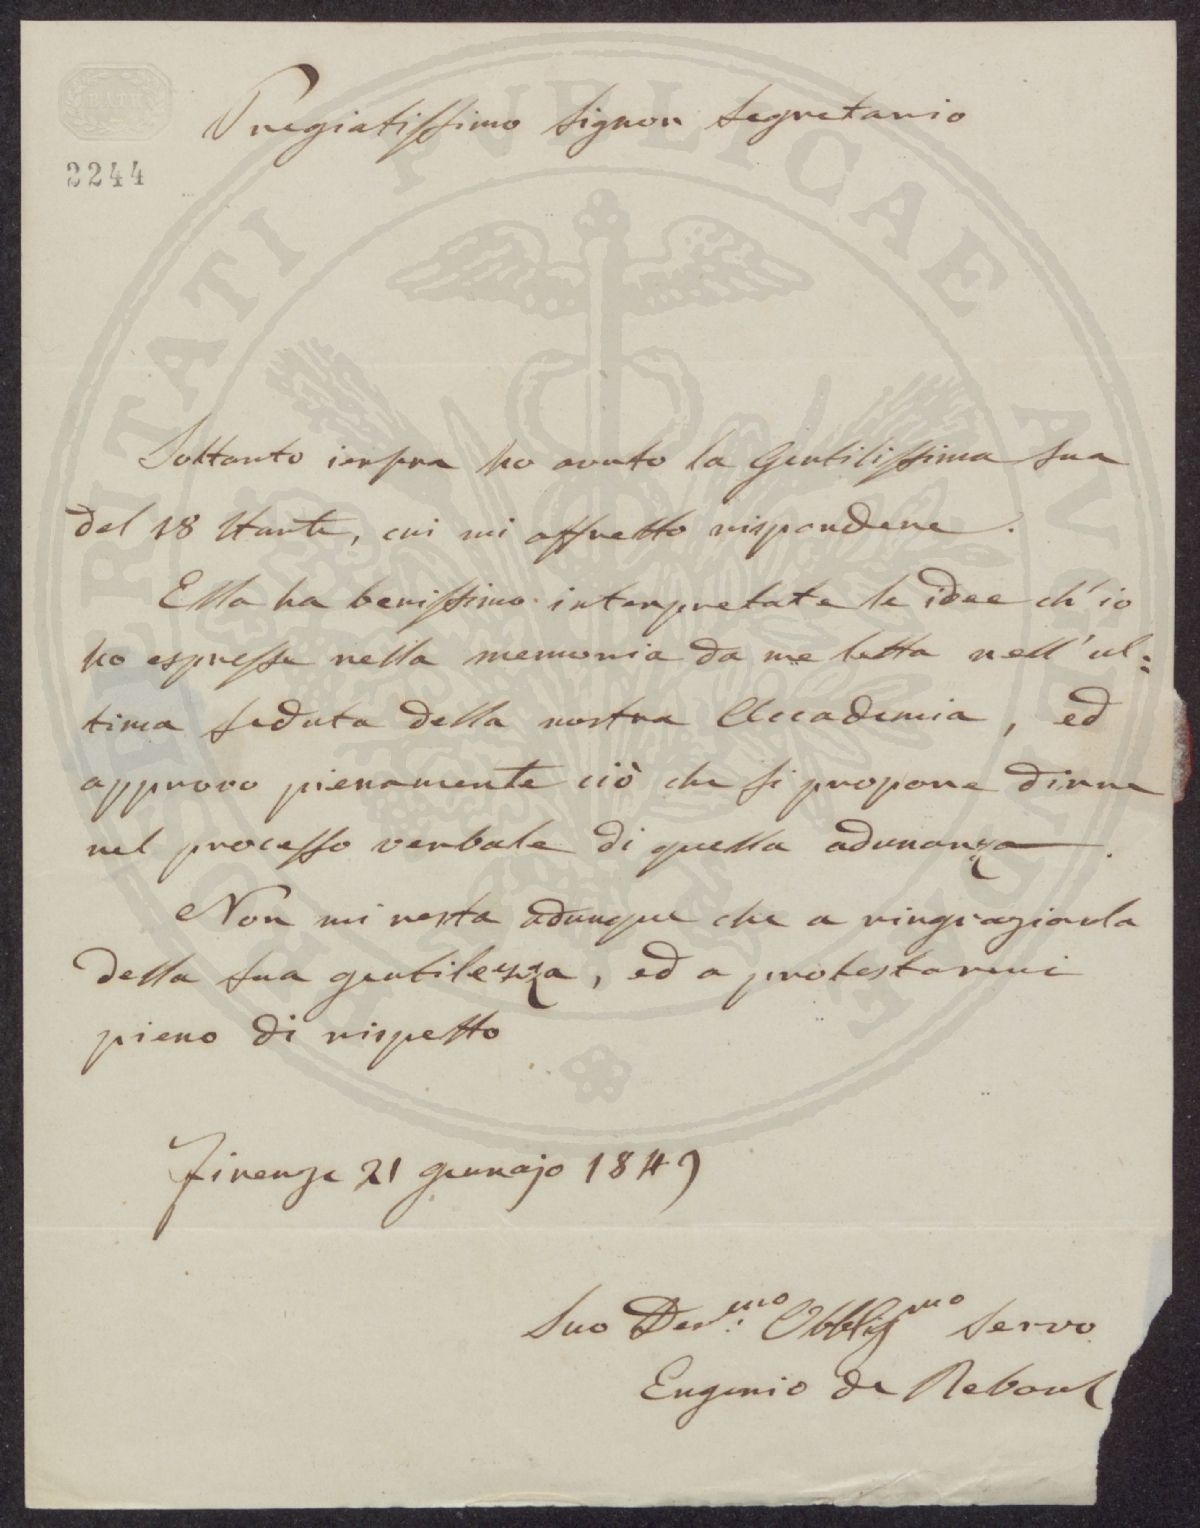 BATH
Pregiatissimo Signor Segretario
2244
Soltanto iersera ho avuto la Gentilissima Sua
del 18 stante, cui mi affretto rispondere.
Ella ha benissimo interpretate le idee ch'io
ho espresse nella memoria da me letta nell'ul=
tima seduta della nostra Accademia, ed
approvo pienamente ciò che si propone dirne
nel processo verbale di quella adunanza.
Non mi resta adunque che a ringraziarla
della sua gentilezza, ed a protestarmi
pieno di rispetto
Firenze 21 gennajo 1849
Suo Dev.mo Obblig.mo Servo
Eugenio de Reboul
PROSPERITATI PVBLICAE AVGENDAE